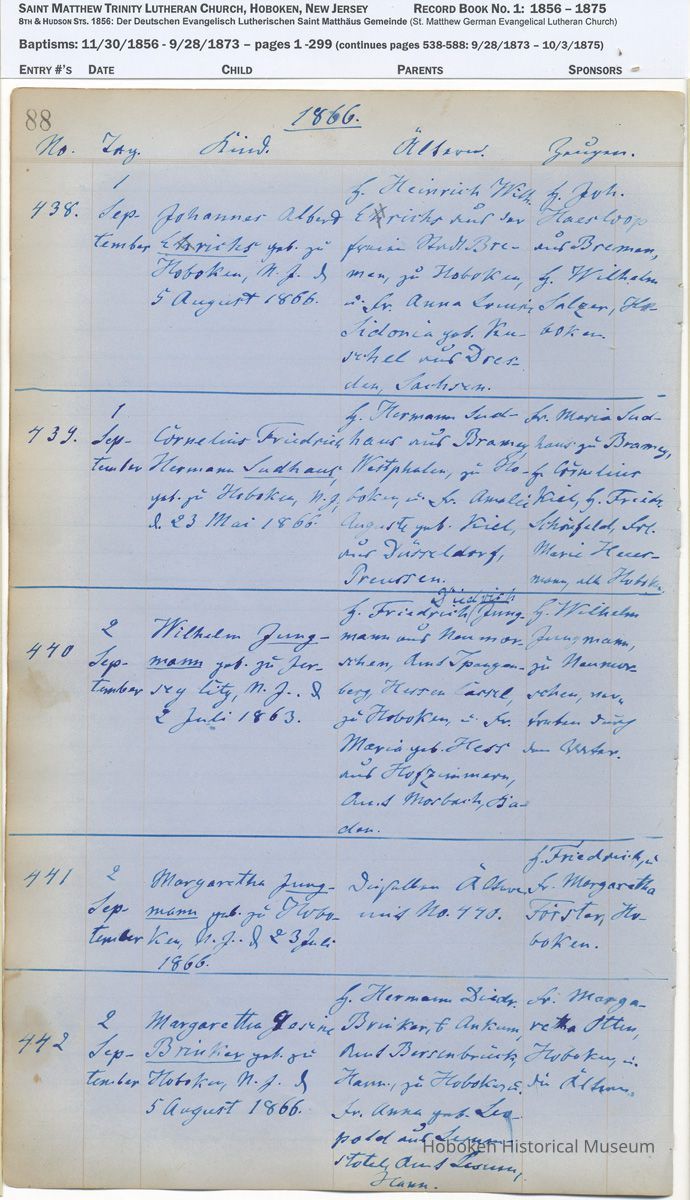 SAINT MATTHEW TRINITY LUTHERAN CHURCH, HOBOKEN, NEW JERSEY RECORD BOOK NO. 1: 1856 – 1875
8TH & HUDSON STS. 1856: Der Deutschen Evangelisch Lutherischen Saint Matthäus Gemeinde (St. Matthew German Evangelical Lutheran Church)
Baptisms: 11/30/1856 - 9/28/1873 – pages 1 -299 (continues pages 538-588: 9/28/1873 – 10/3/1875)
ENTRY #'S DATE CHILD PARENTS SPONSORS
88
1866.
No. Tag. Kind. Ältern. Zeugen.
438.
1
Sep-
tember
Johannes Albert
Ehrichs geb. zu
Hoboken, N. J. d.
5 August 1866.
H. Heinrich Wilh.
Ehrichs aus der
freien Stadt Bre-
men, zu Hoboken,
u. Fr. Anna Louise
Sidonia geb. Ku-
schel aus Dres-
den, Sachsen.
H. Joh.
Haesloop
aus Bremen,
H. Wilhelm
Salzer, Ho-
boken.
439.
1
Sep-
tember
Cornelius Friedrich
Hermann Sudhaus,
geb. zu Hoboken, N. J.
d. 23 Mai 1866.
H. Hermann Sud-
haus aus Bramey,
Westphalen, zu Ho-
boken, u. Fr. Amalie
Auguste geb. Kiel,
aus Düsseldorf,
Preussen.
Fr. Maria Sud-
haus zu Bramey,
H. Cornelius
Kiel, H. Friedr.
Schönfeld, Frl.
Marie Heuer-
mann, alle Hoboken.
440
2
Sep-
tember
Wilhelm Jung-
mann geb. zu Jer-
sey City, N. J. d.
2 Juli 1863.
Diedrich
H. Friedrich Jung-
mann aus Neumor-
schen, Amt Spangen-
berg, Hessen Cassel,
zu Hoboken, u. Fr.
Maria geb. Hess
aus Hofzimmern,
Amt Mosbach, Ba-
den.
H. Wilhelm
Jungmann,
zu Neumor-
schen, ver-
treten durch
den Vater.
441
2
Sep-
tember
Margaretha Jung-
mann geb. zu Hobo-
ken, N. J. d. 23 Juli
1866.
Dieselben Ältern
wie No. 440.
H. Friedrich, u.
Fr. Margaretha
Förster, Ho-
boken.
442
2
Sep-
tember
Margaretha Gesine
Brinker geb. zu
Hoboken, N. J. d.
5 August 1866.
H. Hermann Diedr.
Brinker, Ankum,
Amt Bersenbrück,
Hann., zu Hoboken, u.
Fr. Anna geb. Leo-
pold aus
stotel, Amt Lesum,
Hann.
Fr. Marga-
retha Otten,
Hoboken, u.
die Ältern.
Hoboken Historical Museum